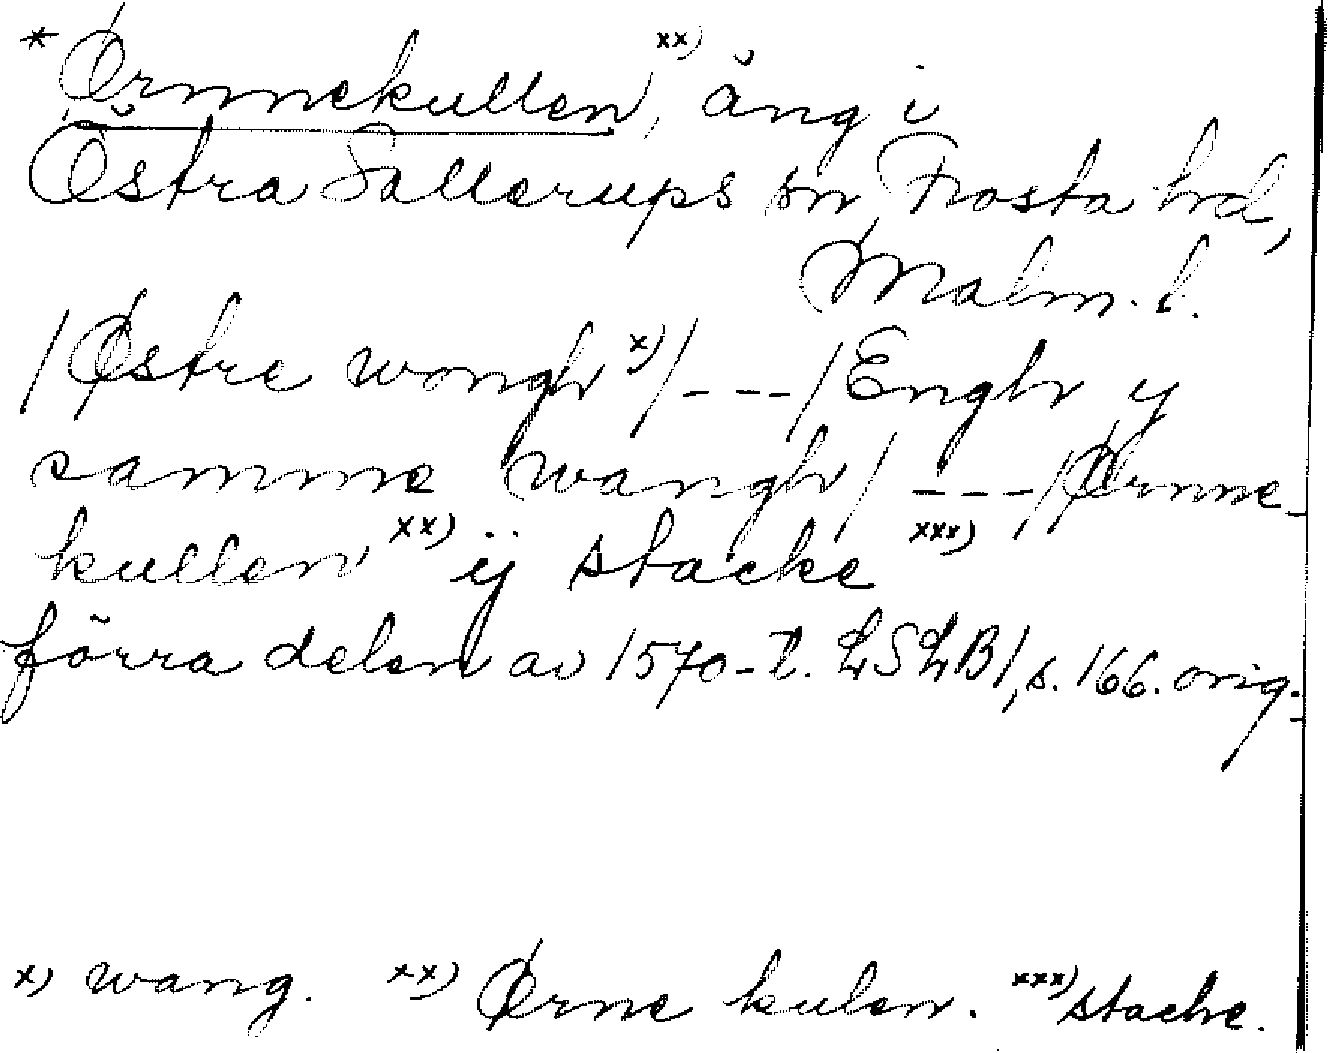 * Ørnnekullen, xx) äng i
Östra Sallerups sn, Frosta hd,
Malm. l.
/Østre wongh x)/---/Engh y
samme wangh/ ---/Ørnne-
kullen xx) ij stacke xxx)
förra delen av 1570-t. LSLB1, s. 166. orig.
x) wang. xx) Ørne kulen. xxx) stache.